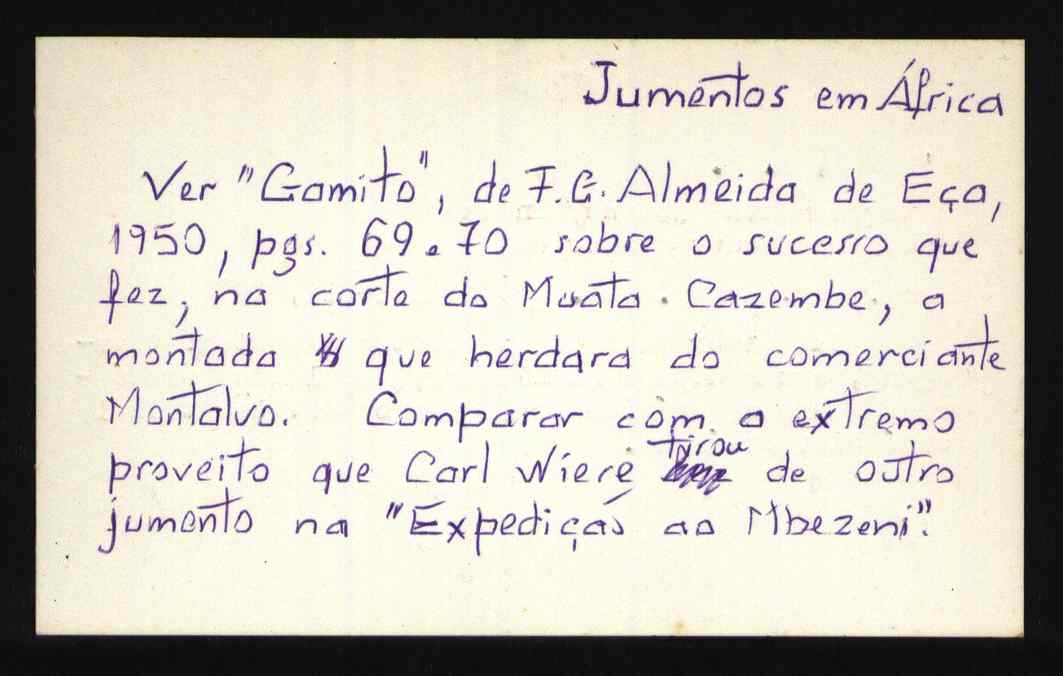 Jumentos em África
Ver "Gamito", de F.G. Almeida de Eça,
1950, pgs. 69 e 70 sobre o sucesso que
fez, na corte do Muata Cazembe, a
montada que herdara do comerciante
Montalvo. Comparar com o extremo
proveito que Carl Wiere tirou de outro
jumento na "Expedição ao Mbezeni".